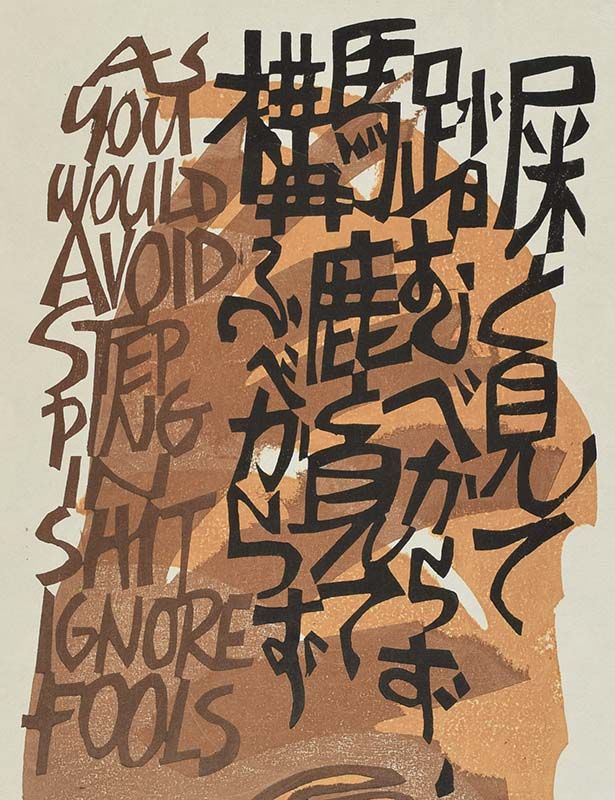 屎と見て
踏むべからず
馬鹿と見て
構ふべからず
AS
YOU
WOULD
AVOID
STEP
PING
IN
SHIT
IGNORE
FOOLS